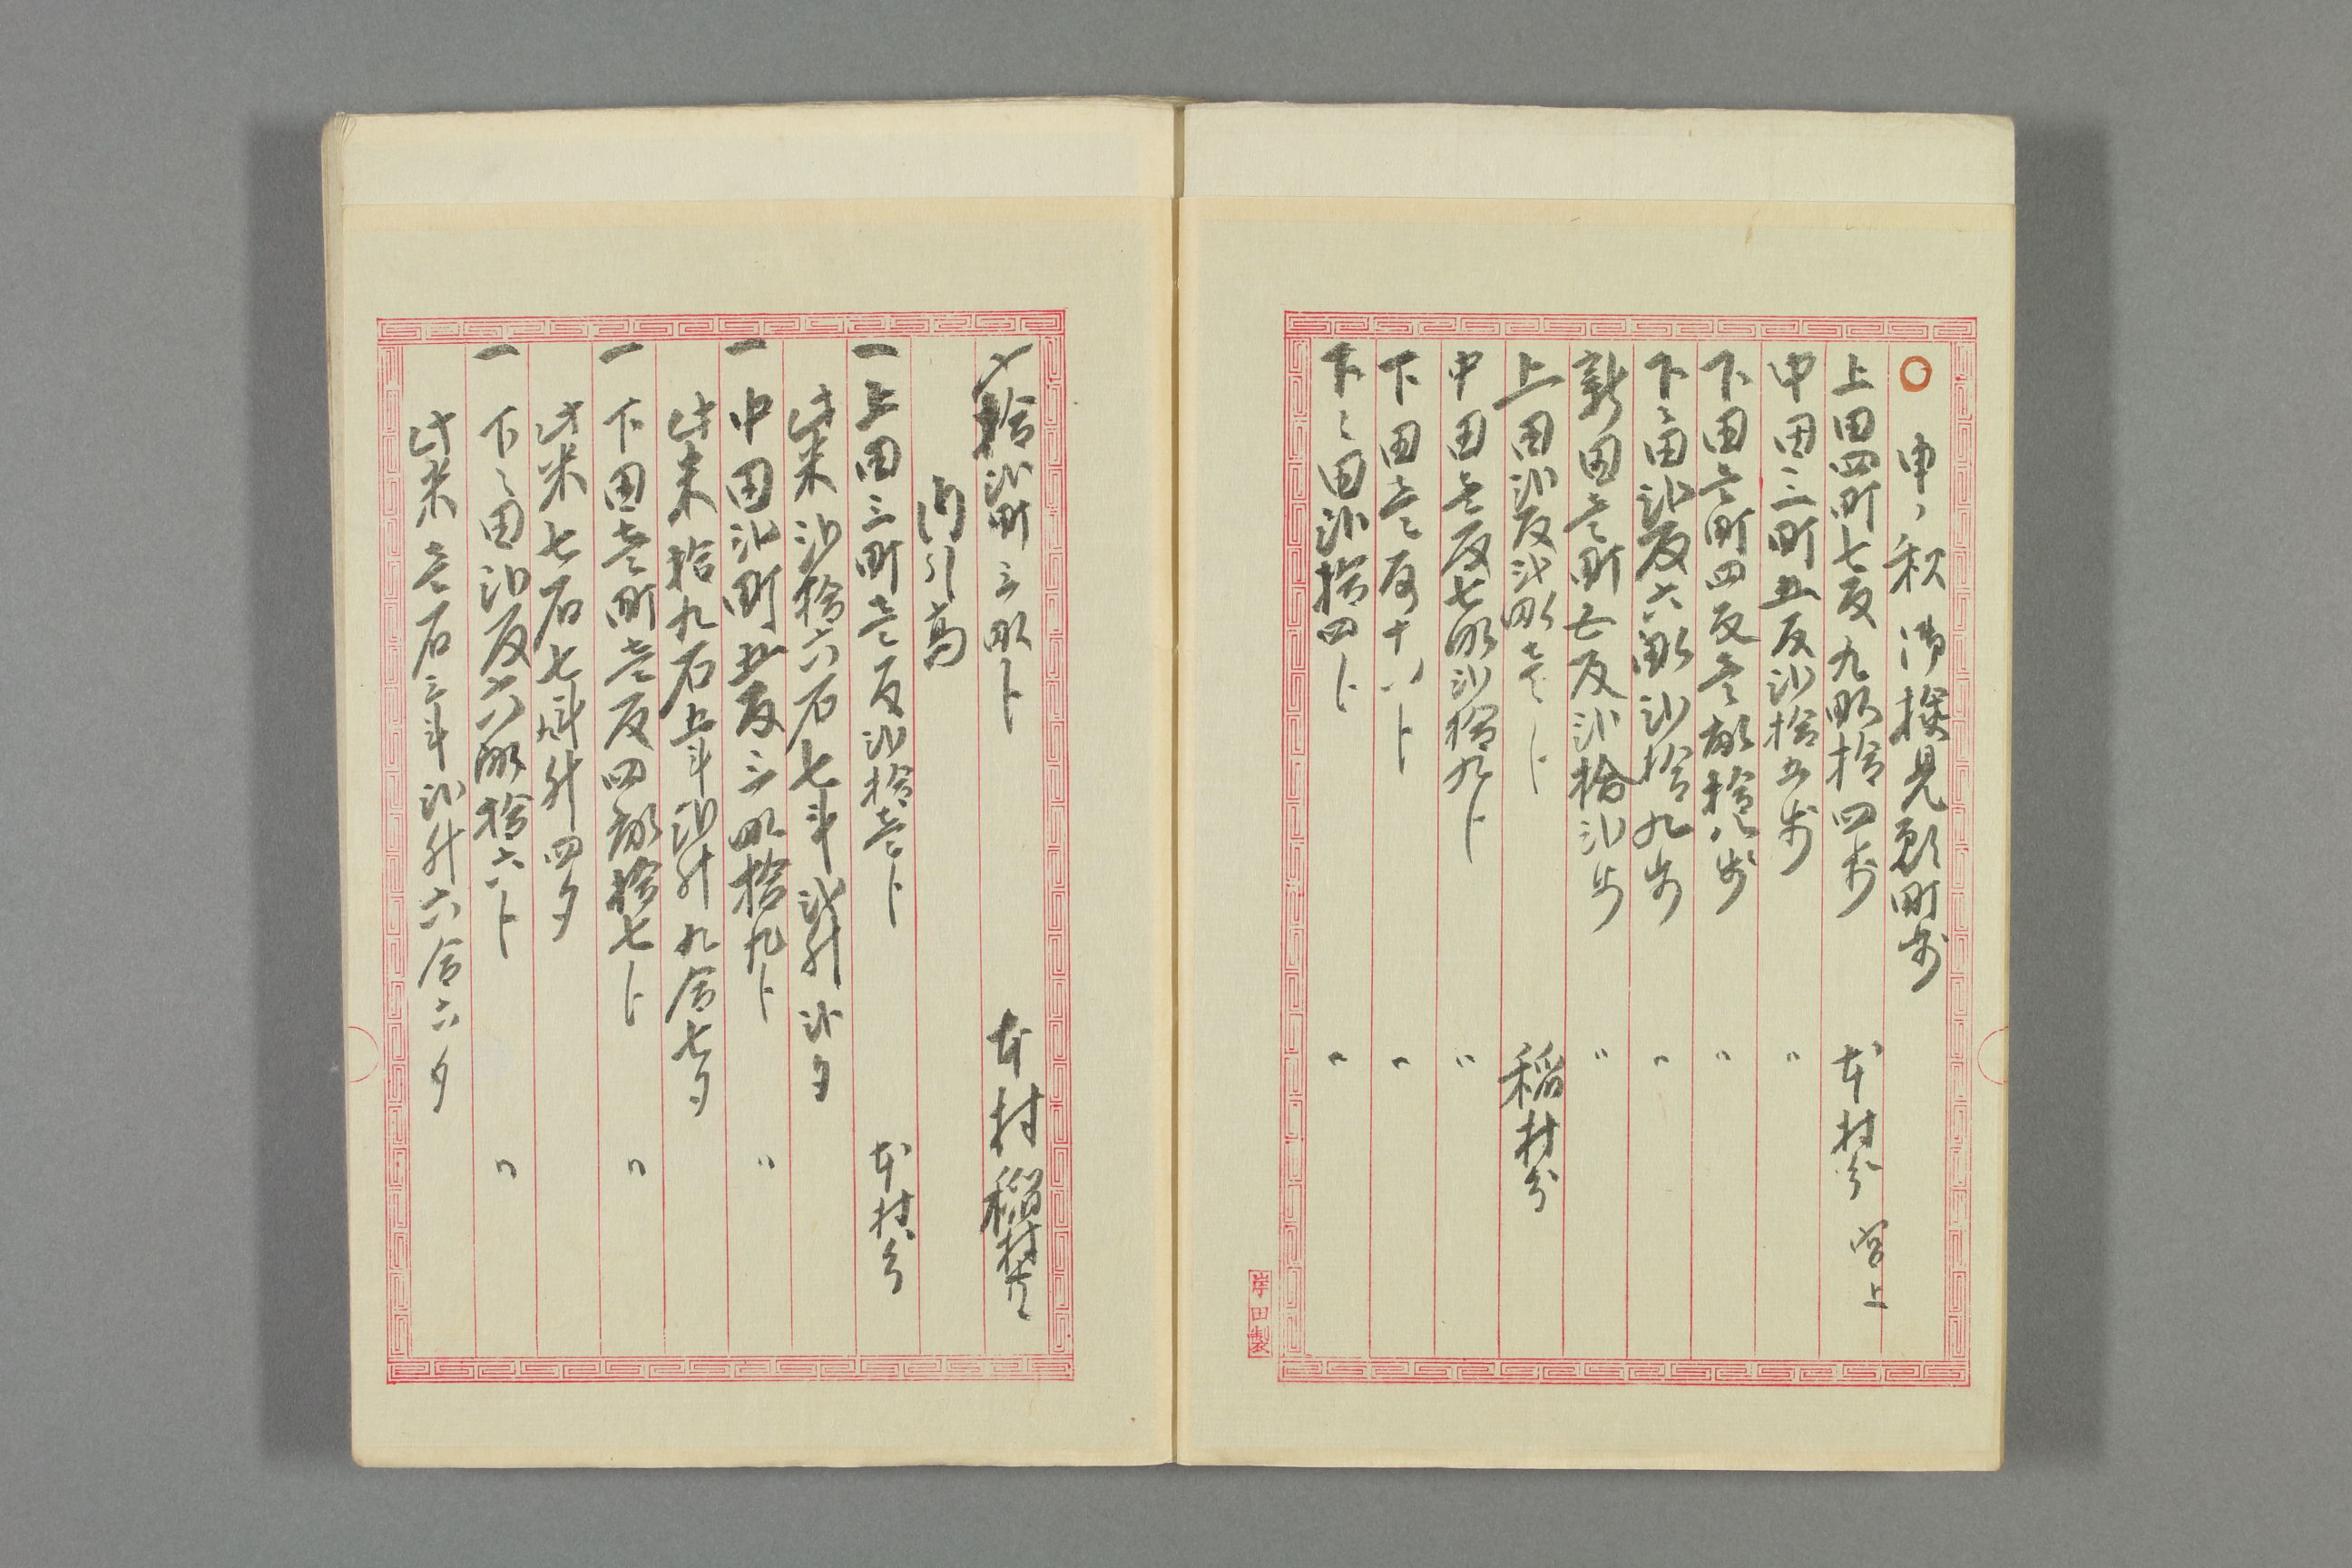 ○ 申ノ秋 御検見願町歩
上田四町七反九畝拾四歩 本村分 宮上
中田三町五反弐拾五歩 〃
下田壱町四反壱畝拾八歩 〃
下々田弐反六畝弐拾九歩 〃
新田壱町七反弐拾弐歩 〃
上田弐反弐畝壱卜 稲村分
中田壱反七畝弐拾九卜 〃
下田壱反十八卜 〃
下々田弐拾四卜 〃
岸田製
〆拾弐町三畝卜 本村 稲村共
内引高
一 上田三町壱反弐拾壱卜 本村分
此米弐拾六石七斗弐升弐夕
一 中田弐町五反三畝拾九卜 〃
此米拾九石五斗弐升九合七夕
一 下田壱町壱反四畝拾七卜 〃
此米七石七斗升四夕
一 下々田弐反六畝拾六卜 〃
此米壱石三斗弐升六合六夕